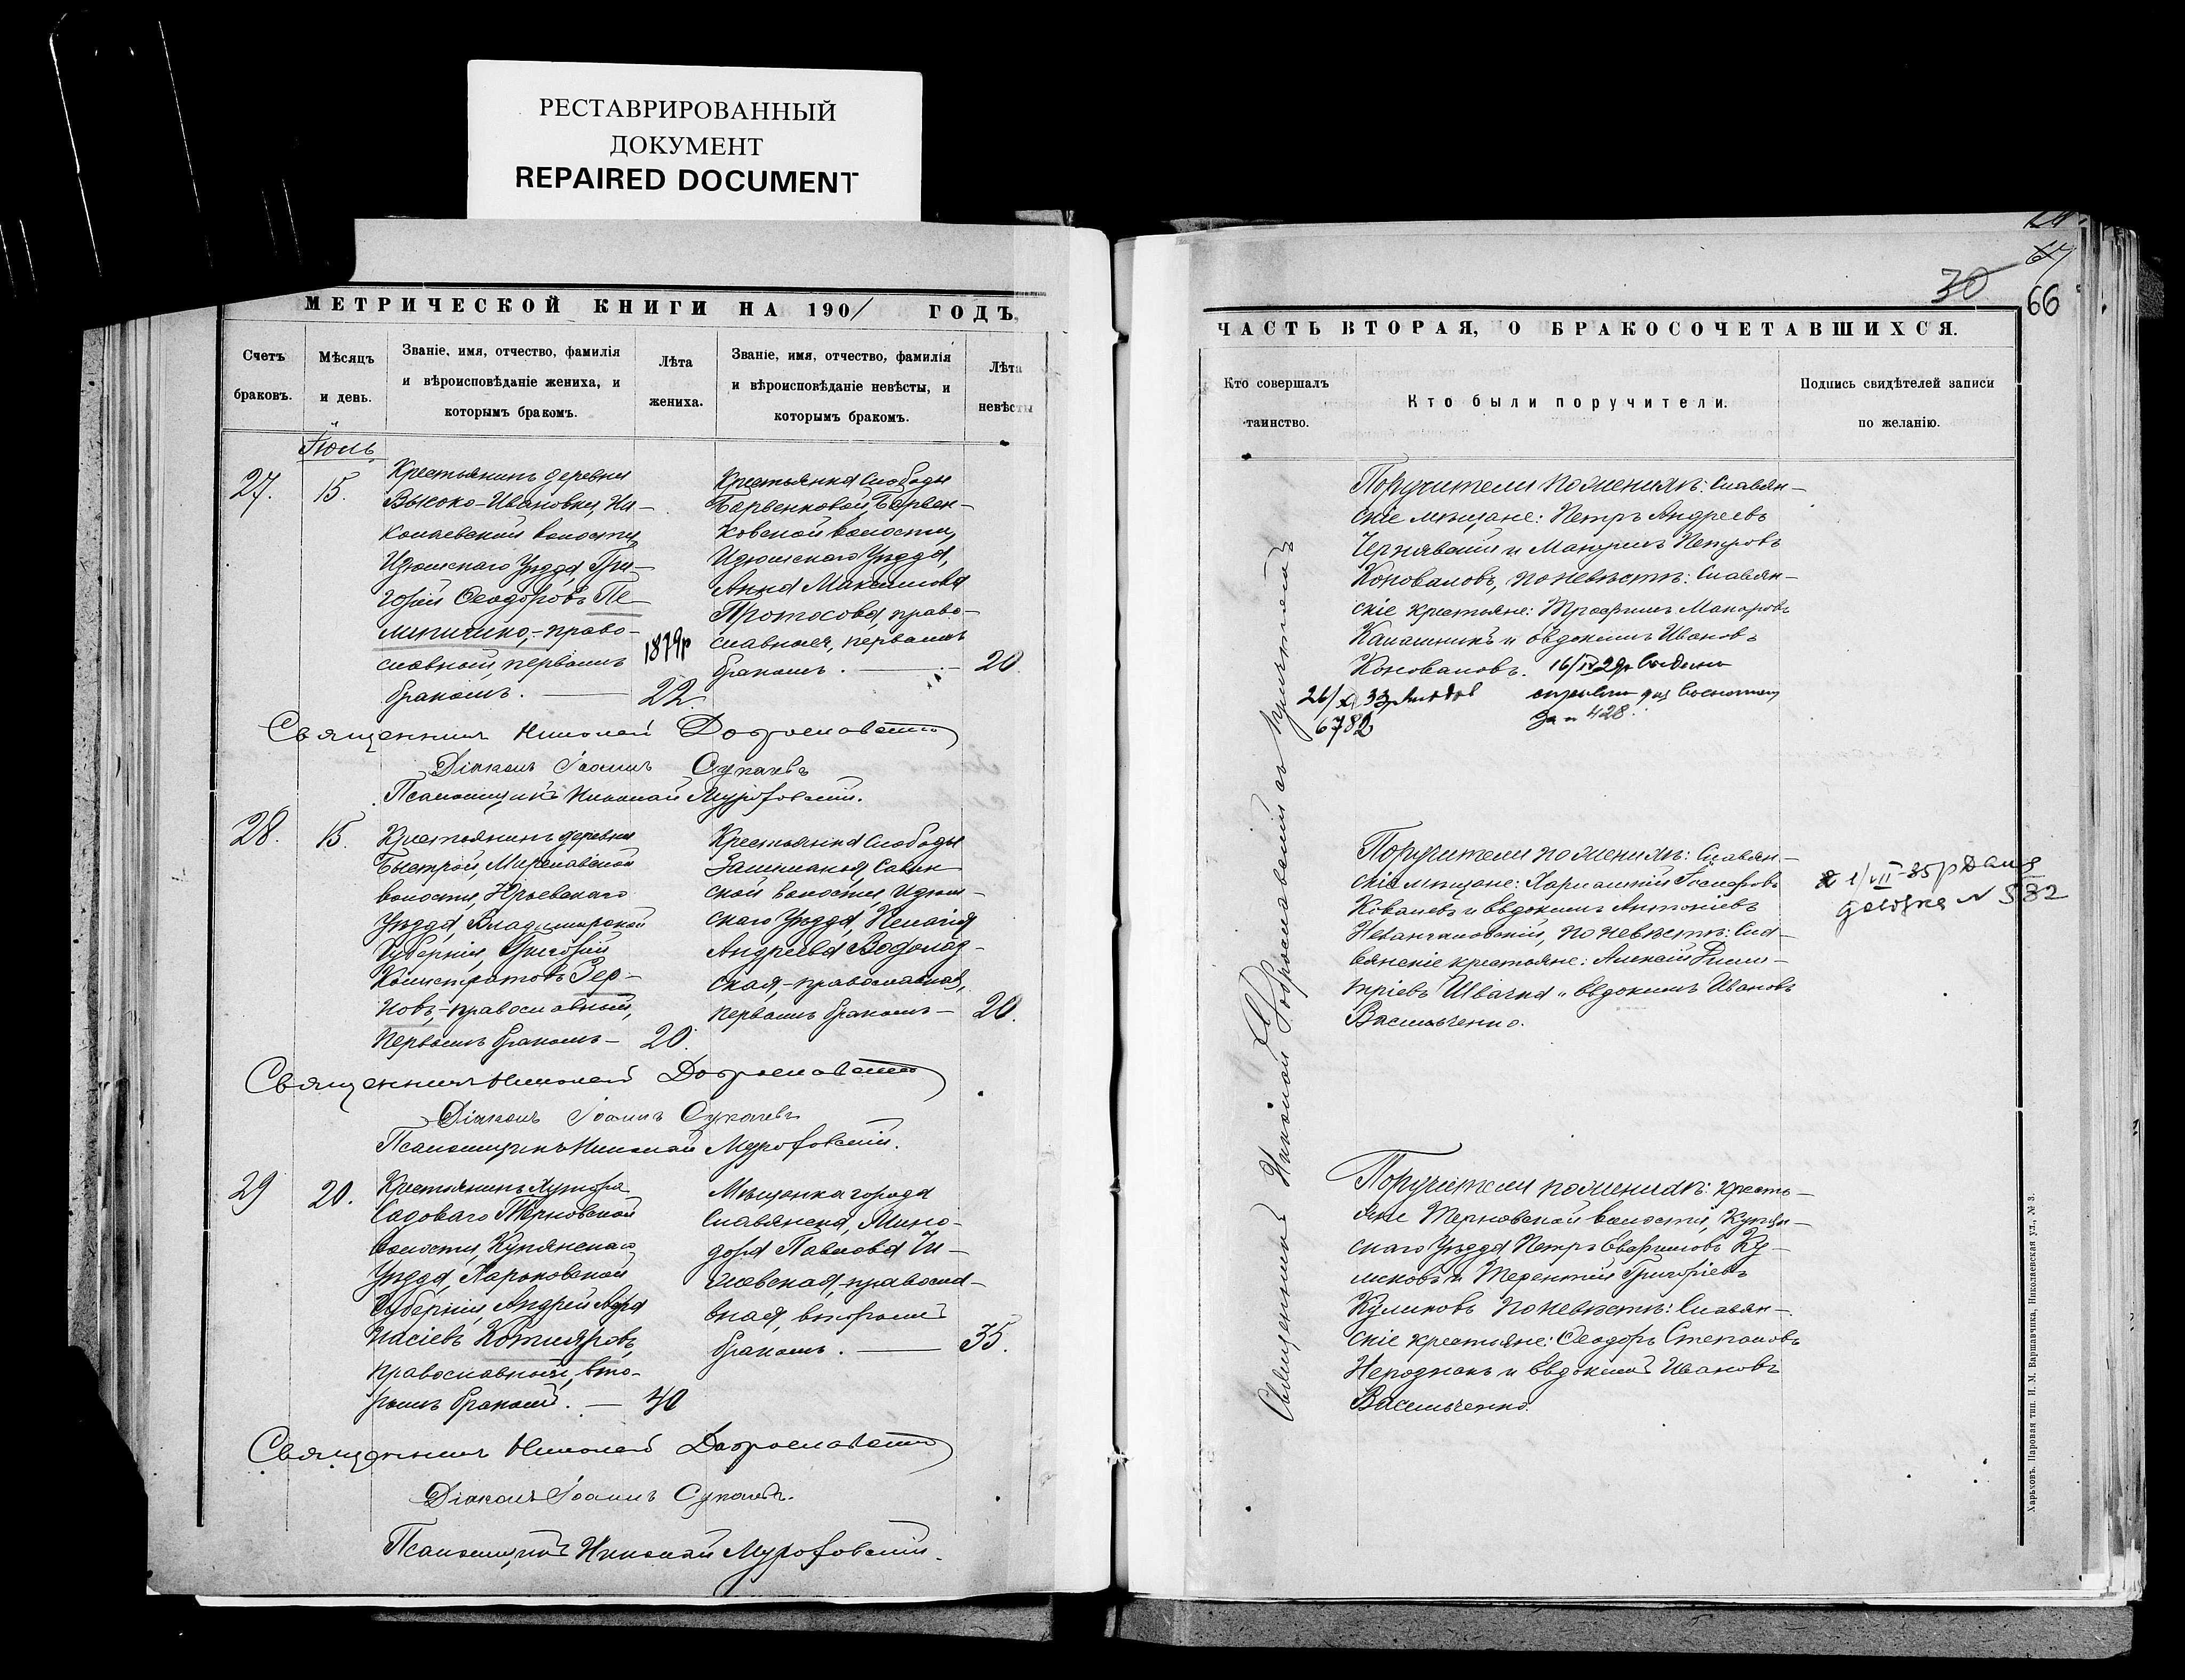 РЕСТАВРИРОВАННЫЙ
ДОКУМЕНТ
REPAIRED DOCUMENT
МЕТРИЧЕСКОЙ КНИГИ НА 1901 ГОДЪ,
Счетъ браковъ.
Мѣсяцъ и день.
Званіе, имя, отчество, фамилія
и вѣроисповѣданіе жениха, и
которымъ бракомъ.
Лѣта
жениха.
Званіе, имя, отчество, фамилія
и вѣроисповѣданіе невѣсты, и
которымъ бракомъ.
Лѣта
невѣсты
Іюль
27.
15.
Крестьянинъ деревни
Высоко-Ивановки, Ни-
колаевской волости
Изюмскаго Уѣзда, Гри-
горій Ѳеодоровъ Пе
липичено,-право-
славный, первымъ
бракомъ.
1879р
22.
Крестьянка Слободы
Барвенковой, Барвен-
ковской волости,
Изюмскаго Уѣзда,
Анна Максимова
Протосова, право-
славная, первымъ
бракомъ.
20.
Священникъ Николай Доброславскій
Діаконъ Іоаннъ Сукачевъ
Псаломщикъ Николай
28.
15.
Крестьянинъ деревни
Быстрой, Мирславской
волости, Юрьевскаго
Уѣзда, Владимирской
Губерніи, Григорій
Калистратовъ Зер-
новъ,-православный,
первымъ бракомъ-
20.
Крестьянка Слободы
Савин-
ской волости, Изюм-
скаго Уѣзда, Пелагія
Андреева Водолаз-
ская,-православная,
первымъ бракомъ-
20.
Священникъ Николай Доброславскій
Діаконъ Іоаннъ Сукачевъ
Псаломщикъ Николай
29
20.
Крестьянинъ хутора
Садоваго Терновской
волости, Купянскаго
Уѣзда, Харьковской
Губерніи, Андрей Афа
насіевъ Котляровъ,
православный, вто-
рымъ бракомъ.
40
Мѣщанка города
Славянска, Мино-
дора Павлова
православ-
ная, вторымъ
бракомъ.
35.
Священникъ Николай Доброславскій
Діаконъ Іоаннъ Сукачевъ.
Псаломщикъ Николай
30
66
ЧАСТЬ ВТОРАЯ, О БРАКОСОЧЕТАВШИХСЯ.
Кто совершалъ
таинство.
Кто были поручители.
Подпись свидѣтелей записи
по желанію.
Священникъ Николай Доброславскій съ причтомъ
Поручители по женихѣ: Славян-
скіе мѣщане: Петръ Андреевъ
Чернявскій и Петровъ
Коноваловъ, по невѣстѣ: Славян-
скіе крестьяне: Трофимъ Макаровъ
Калашникъ и Евдокимъ Ивановъ
Коноваловъ.
428
6782
Поручители по женихѣ: Славян-
скіе мѣщане: Харлампій Іосифовъ
Ковалевъ и Евдокимъ Антоніевъ
по невѣстѣ: Сла-
вянскіе крестьяне: Алексій Дими-
тріевъ Швачка и Евдокимъ Ивановъ
Васильченко.
N 582
Поручители по женихѣ: кресть-
яне Терновской волости, Купян-
скаго Уѣзда Петръ Евфимовъ Ку-
ликовъ и Терентій Григоріевъ
Куликовъ по невѣстѣ: Славян-
скіе крестьяне: Ѳеодоръ Степановъ
и Евдокимъ Ивановъ
Васильченко.
Харьковъ. Паровая тип. И. М. Варшавчика, Николаевская ул., № 3.